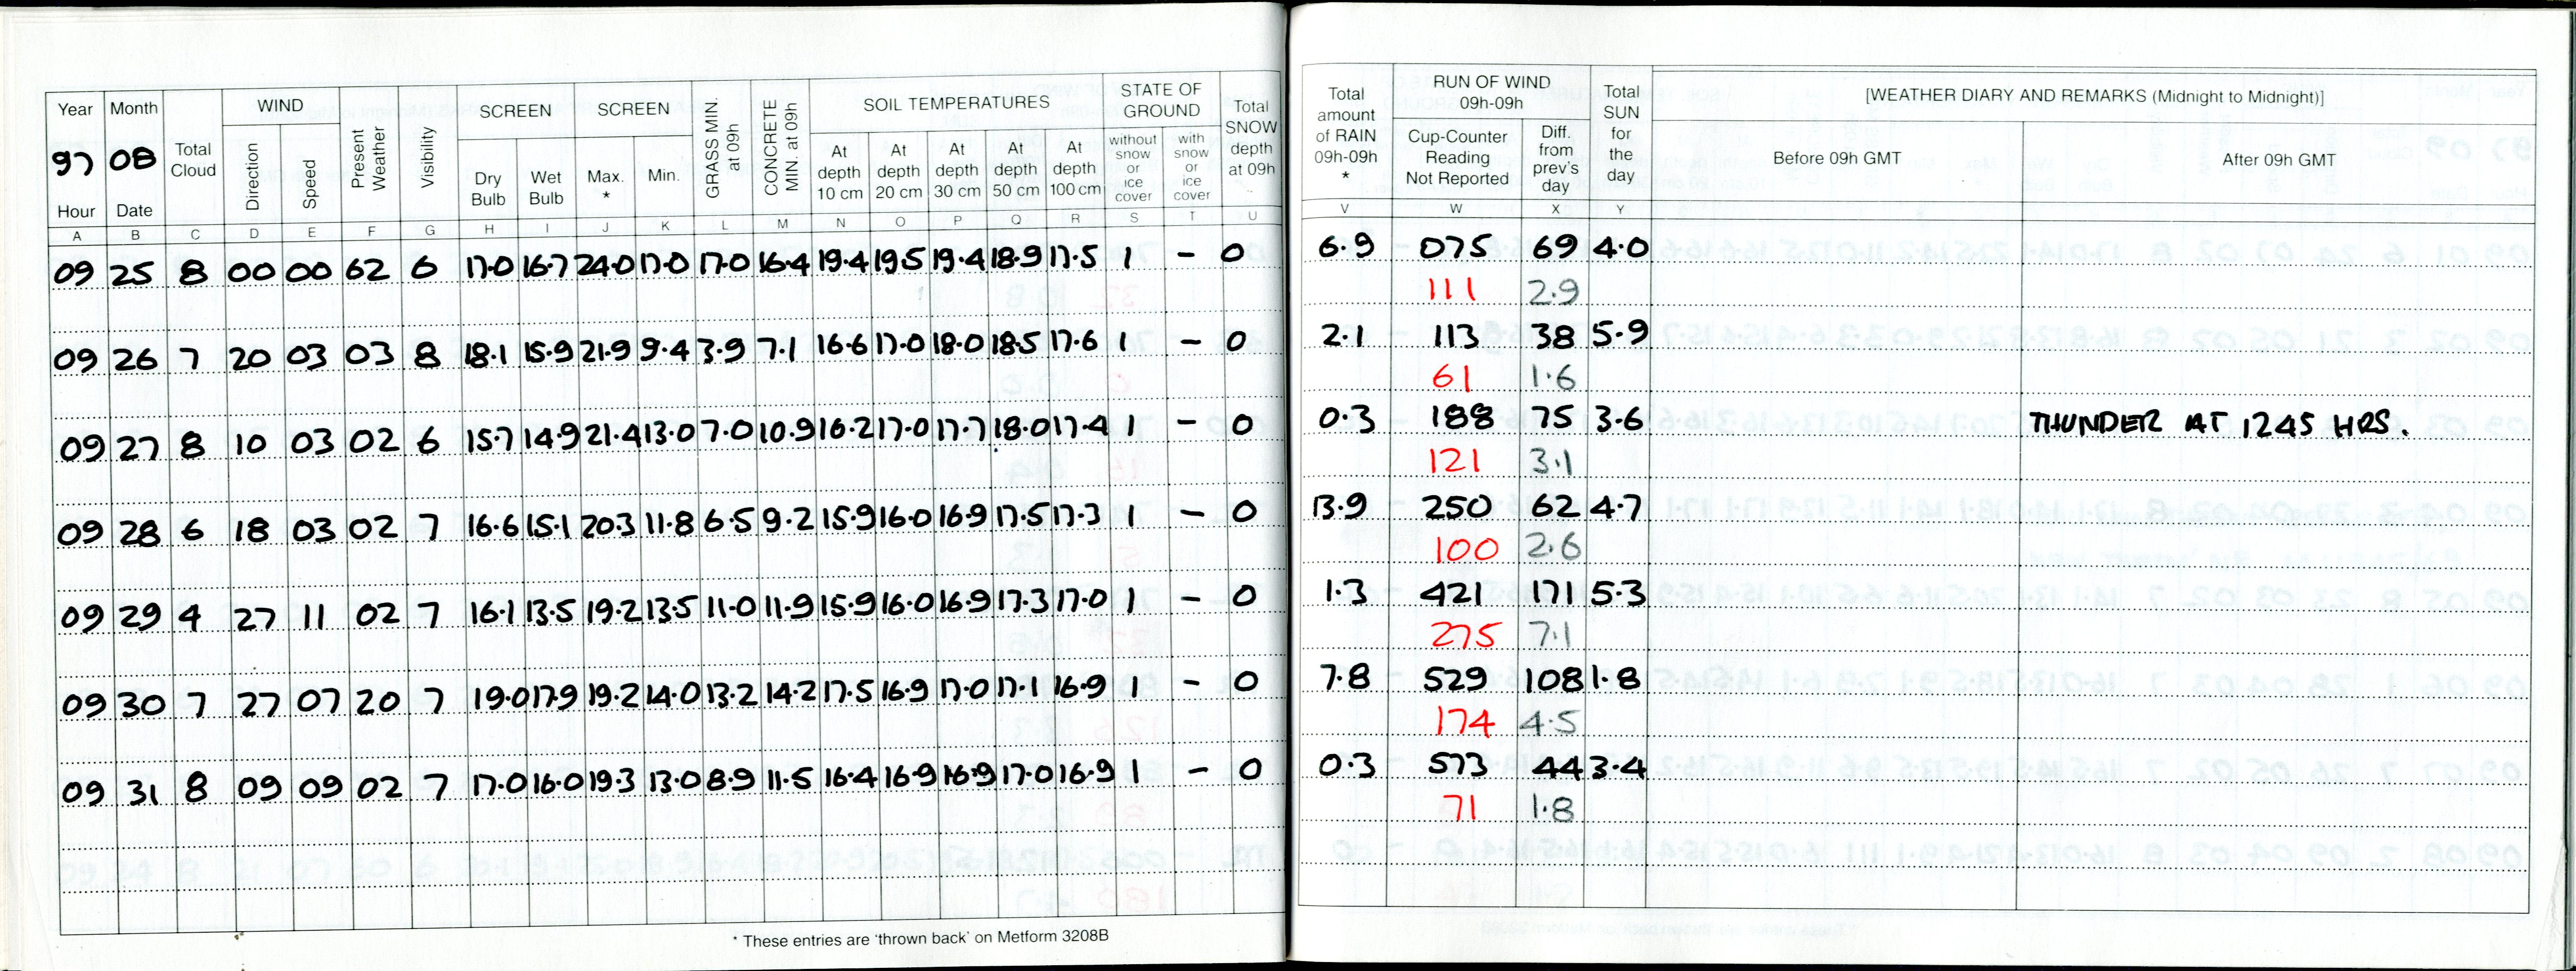 Year Month Total Cloud WIND Present Weather Visibility SCREEN SCREEN GRASS MIN. at 09h CONCRETE MIN. at 09h SOIL TEMPERATURES STATE OF GROUND Total SNOW depth at 09h Total amount of RAIN 09h-09h * RUN OF WIND 09h-09h Total SUN for the day [WEATHER DIARY AND REMARKS (Midnight to Midnight)]
97 08 Direction Speed Dry Bulb Wet Bulb Max. * Min. At depth 10 cm At depth 20 cm At depth 30 cm At depth 50 cm At depth 100 cm without snow or ice cover with snow or ice cover Cup-Counter Reading Not Reported Diff. from prev's day Before 09h GMT After 09h GMT
Hour Date
A B C D E F G H I J K L M N O P Q R S T U V W X Y
09 25 8 00 00 62 6 17.0 16.7 24.0 17.0 17.0 16.4 19.4 19.5 19.4 18.9 17.5 1 - 0 6.9 075 69 4.0
111 2.9
09 26 7 20 03 03 8 18.1 15.9 21.9 9.4 3.9 7.1 16.6 17.0 18.0 18.5 17.6 1 - 0 2.1 113 38 5.9
61 1.6
09 27 8 10 03 02 6 15.7 14.9 21.4 13.0 7.0 10.9 16.2 17.0 17.7 18.0 17.4 1 - 0 0.3 188 75 3.6 THUNDER AT 1245 HRS.
121 3.1
09 28 6 18 03 02 7 16.6 15.1 20.3 11.8 6.5 9.2 15.9 16.0 16.9 17.5 17.3 1 - 0 13.9 250 62 4.7
100 2.6
09 29 4 27 11 02 7 16.1 13.5 19.2 13.5 11.0 11.9 15.9 16.0 16.9 17.3 17.0 1 - 0 1.3 421 171 5.3
275 7.1
09 30 7 27 07 20 7 19.0 17.9 19.2 14.0 13.2 14.2 17.5 16.9 17.0 17.1 16.9 1 - 0 7.8 529 108 1.8
174 4.5
09 31 8 09 09 02 7 17.0 16.0 19.3 13.0 8.9 11.5 16.4 16.9 16.9 17.0 16.9 1 - 0 0.3 573 44 3.4
71 1.8
* These entries are 'thrown back' on Metform 3208B